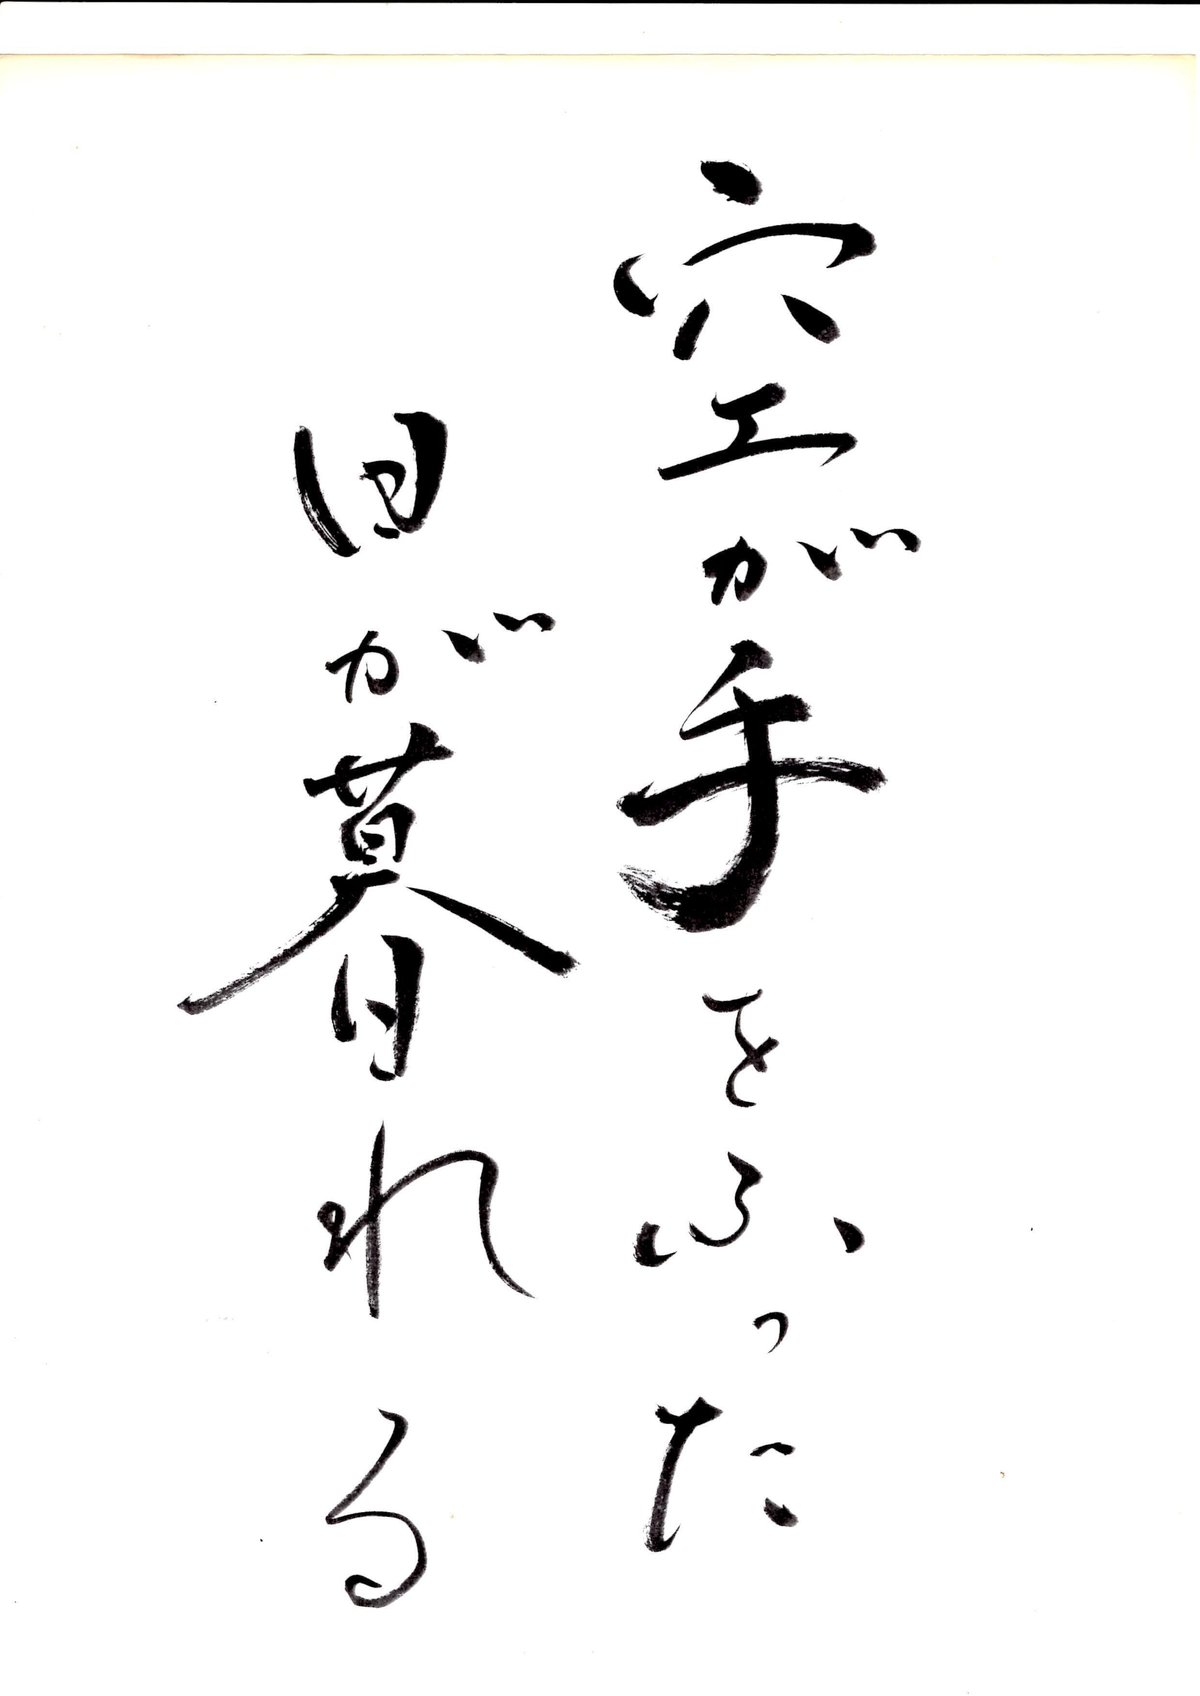 空が手をふった
日が暮れる